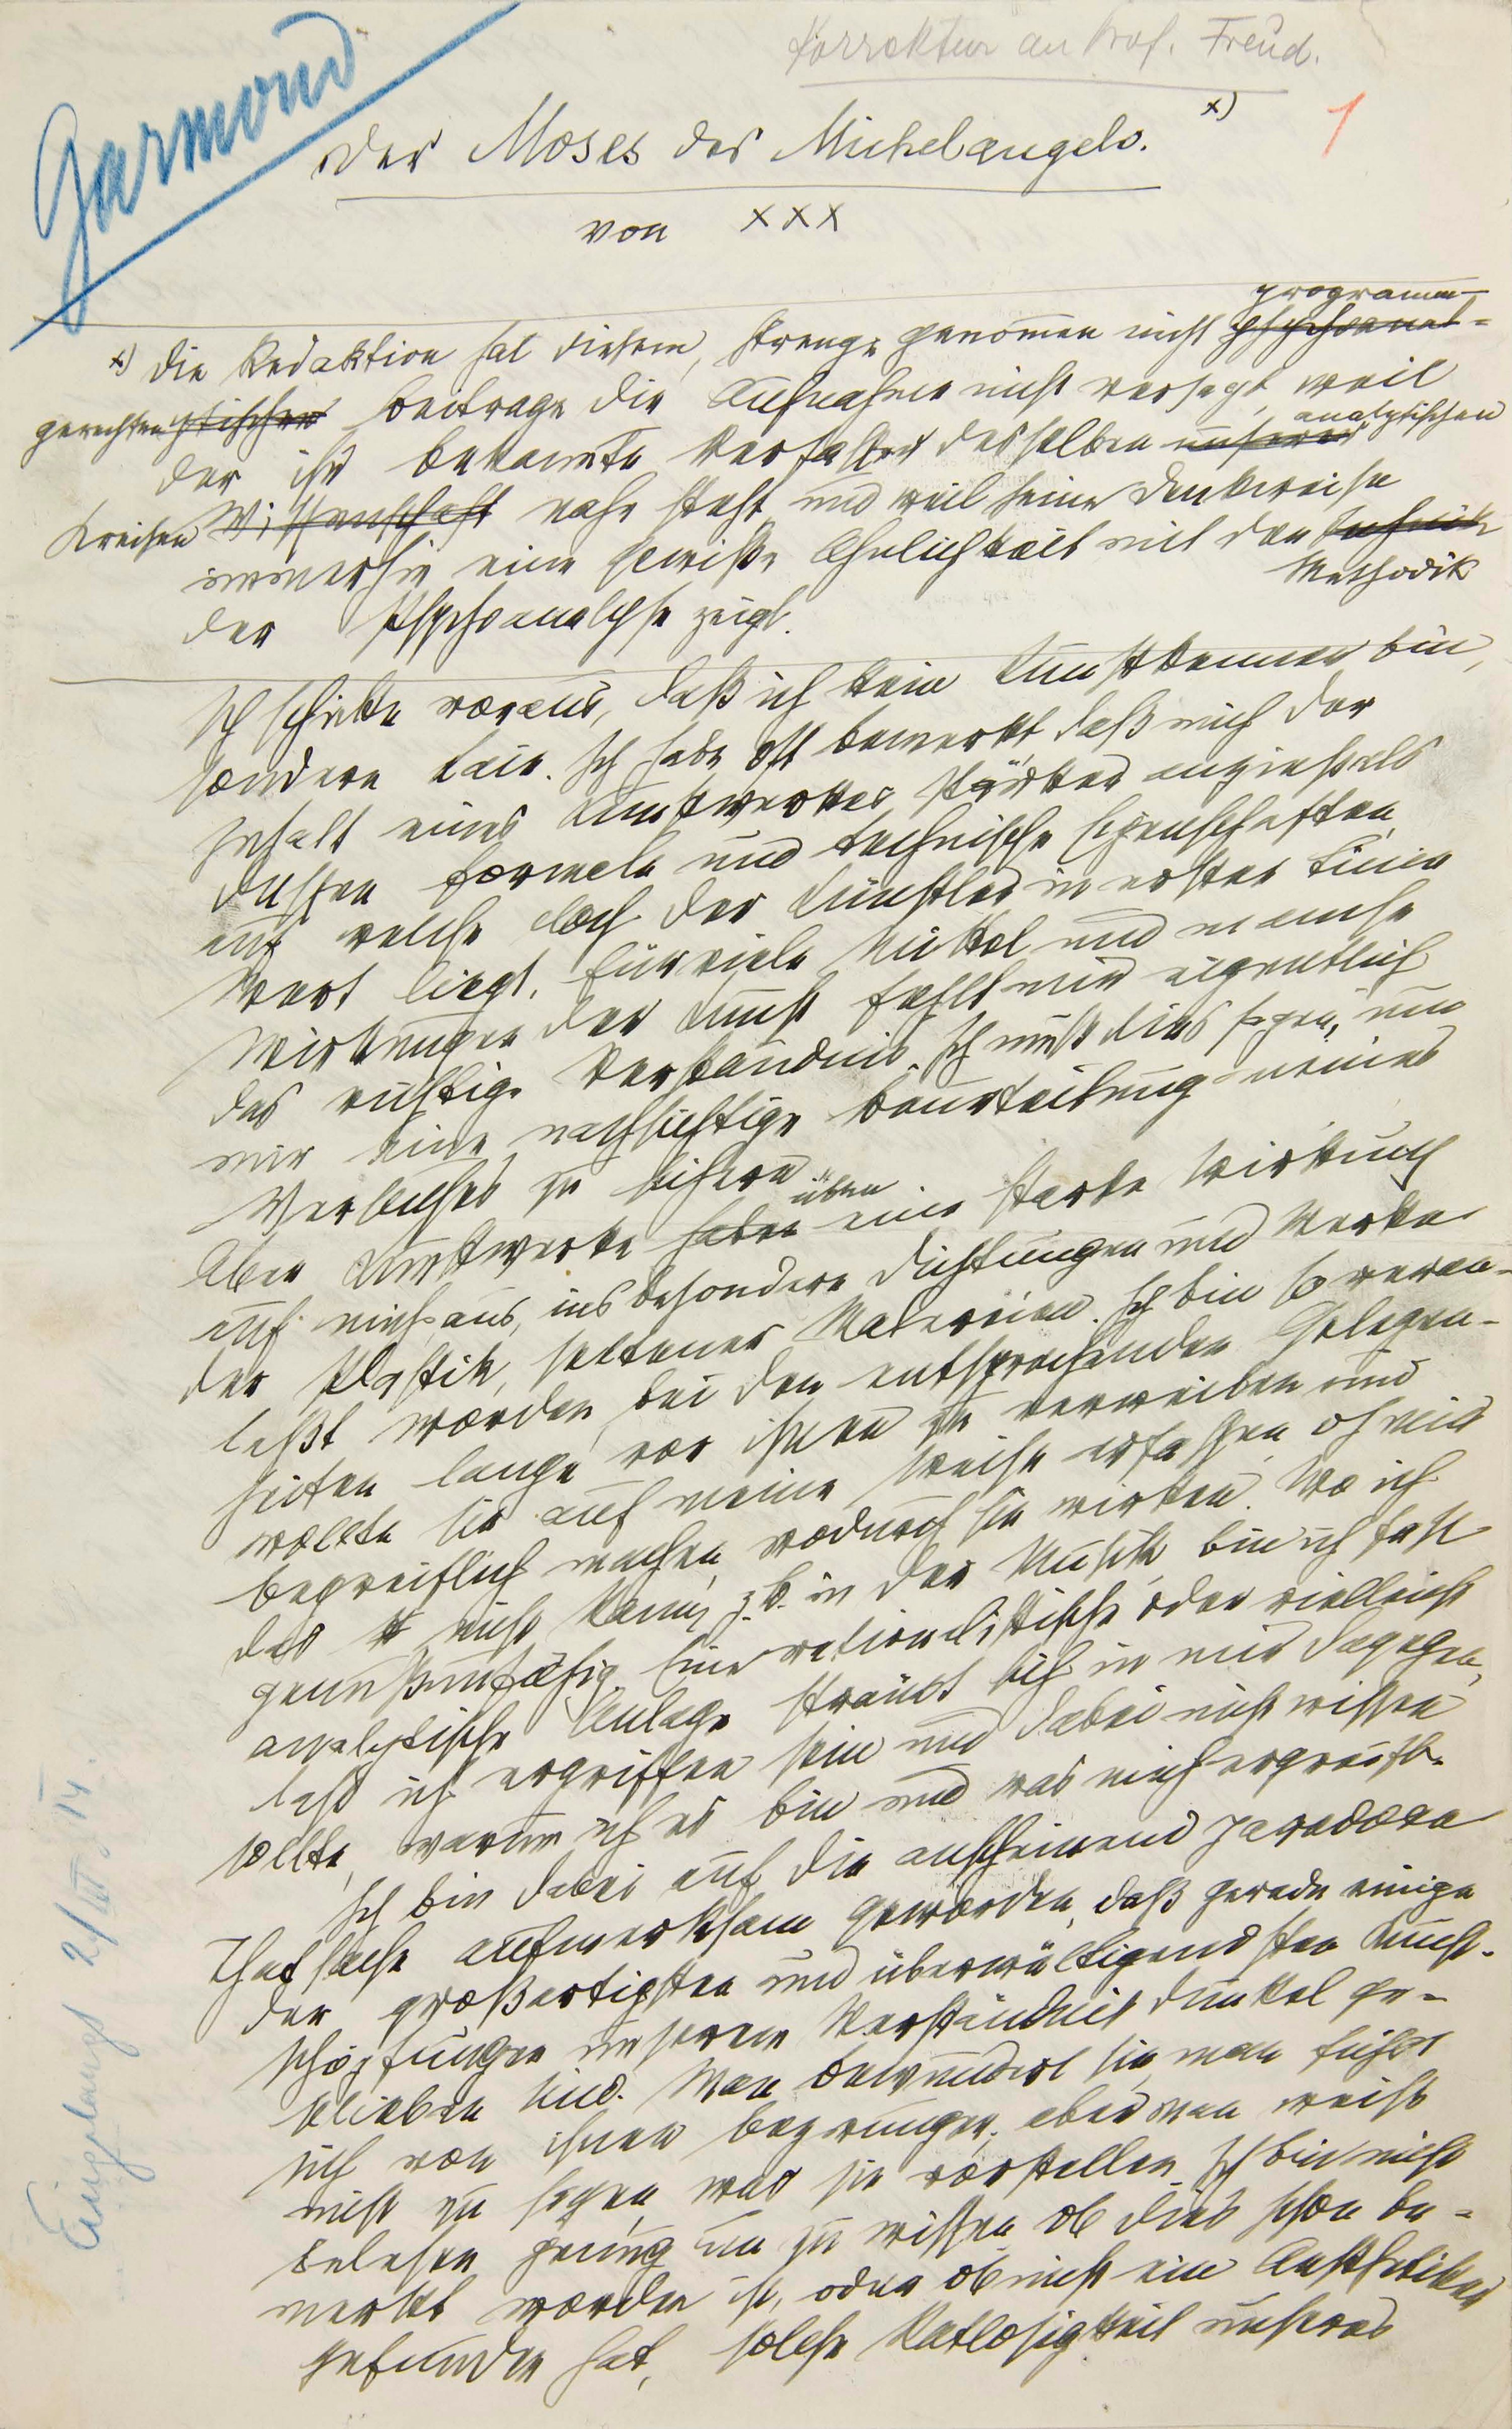 Korrektur an Prof. Freud.
Garmond
1
Der Moses des Michelangelo. x)
von xxx
programm-
x) Die Redaktion hat diesem, strenge genommen nicht psychoanal-
gerechten ytischen Beitrage die Aufnahme nicht versagt, weil
analytischen
der ihr bekannte Verfasser desselben unserer
Kreisen Wissenschaft nahe steht und weil seine Denkweise
immerhin eine gewisse Ähnlichkeit mit der Technik
Methodik
der Psychoanalyse zeigt.
Ich schicke voraus, daß ich kein Kunstkenner bin,
sondern Laie. Ich habe oft bemerkt, daß mich der
Inhalt eines Kunstwerkes stärker anzieht als
dessen formele und technische Eigenschaften,
auf welche doch der Künstler in erster Linie
Wert liegt. Für viele Mittel und manche
Wirkungen der Kunst fehlt mir eigentlich
das richtige Verständnis. Ich muß dies sagen, um
mir eine nachsichtige Beurteilung meines
Versuches zu sichern.
üben
Aber Kunstwerke haben eine starke Wirkung
auf mich aus, insbesondere Dichtungen und Werke
der Plastik, seltener Malereien. Ich bin so veran-
laßt worden, bei den entsprechenden Gelegen-
heiten lange vor ihnen zu verweilen und
wollte sie auf meine Weise erfassen, dh mir
begreiflich machen, wodurch sie wirken. Wo ich
das nicht kann, z.b. in der Musik, bin ich fast
genußunfähig. Eine rationalistische oder vielleicht
analytische Anlage sträubt sich in mir dagegen,
daß ich ergriffen sein und dabei nicht wissen
solle, warum ich es bin und was mich ergreift.
Ich bin dabei auf die anscheinend paradoxe
Thatsache aufmerksam geworden, daß gerade einige
der großartigsten und überwältigendsten Kunst-
schöpfungen unserem Verständnis dunkel ge-
blieben sind. Man bewundert sie, man fühlt
sich von ihnen bezwungen, aber man weiß
nicht zu sagen, was sie vorstellen. Ich bin nicht
belesen genug um zu wissen, ob dies schon be-
merkt worden ist, oder ob nicht ein Aesthetiker
gefunden hat, solche Ratlosigkeit unseres
Eingelangt 2/III 14.